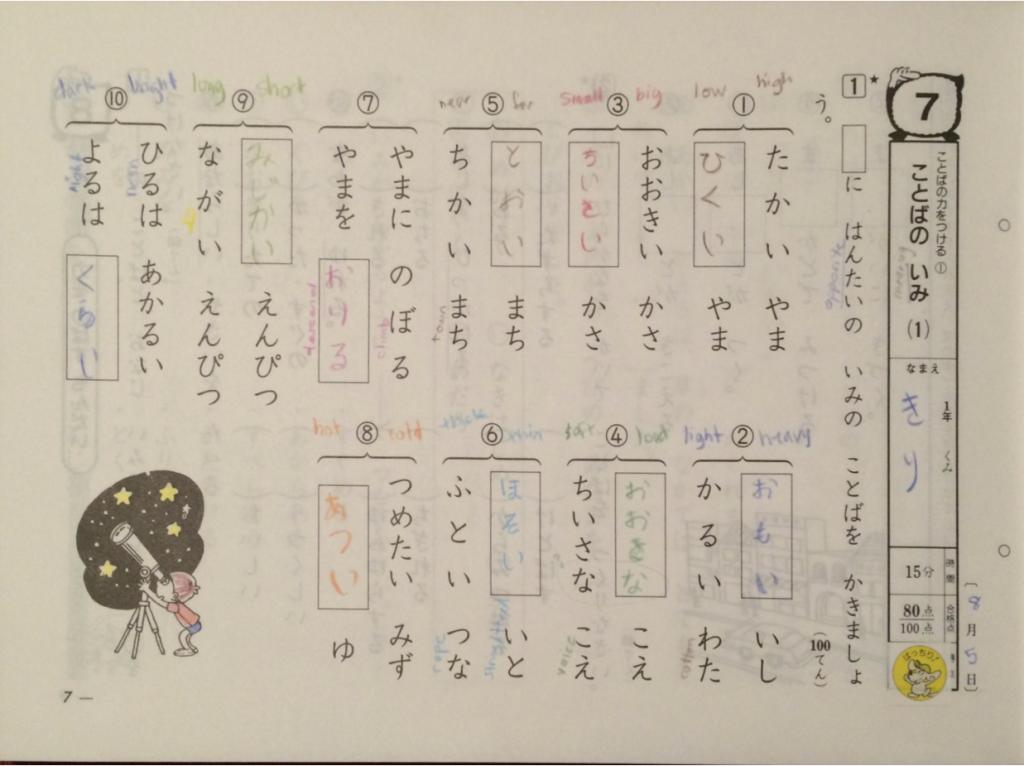 7
ことばの力をつける①
ことばの いみ (1)
なまえ
1年 くみ
きり
時間
15分
合格点
80点
100点
8月5日
ばっちり!
1
□に はんたいの いみの ことばを かきましょう。
(100てん)
opposite
meaning
high
low
①
たかい やま
ひくい やま
heavy
light
②
おもい いし
かるい わた
cotton
big
small
③
おおきい かさ
ちいさい かさ
loud
④
おおきな こえ
ちいさな こえ
voice
far
near
⑤
とおい まち
ちかい まち
town
thin
thick
⑥
ほそい いと
ふとい つな
rope
⑦
やまに のぼる
やまを おりる
climb
descend
cold
hot
⑧
つめたい みず
あつい ゆ
short
long
⑨
みじかい えんぴつ
ながい えんぴつ
bright
dark
⑩
ひるは あかるい
よるは くらい
night
7 —